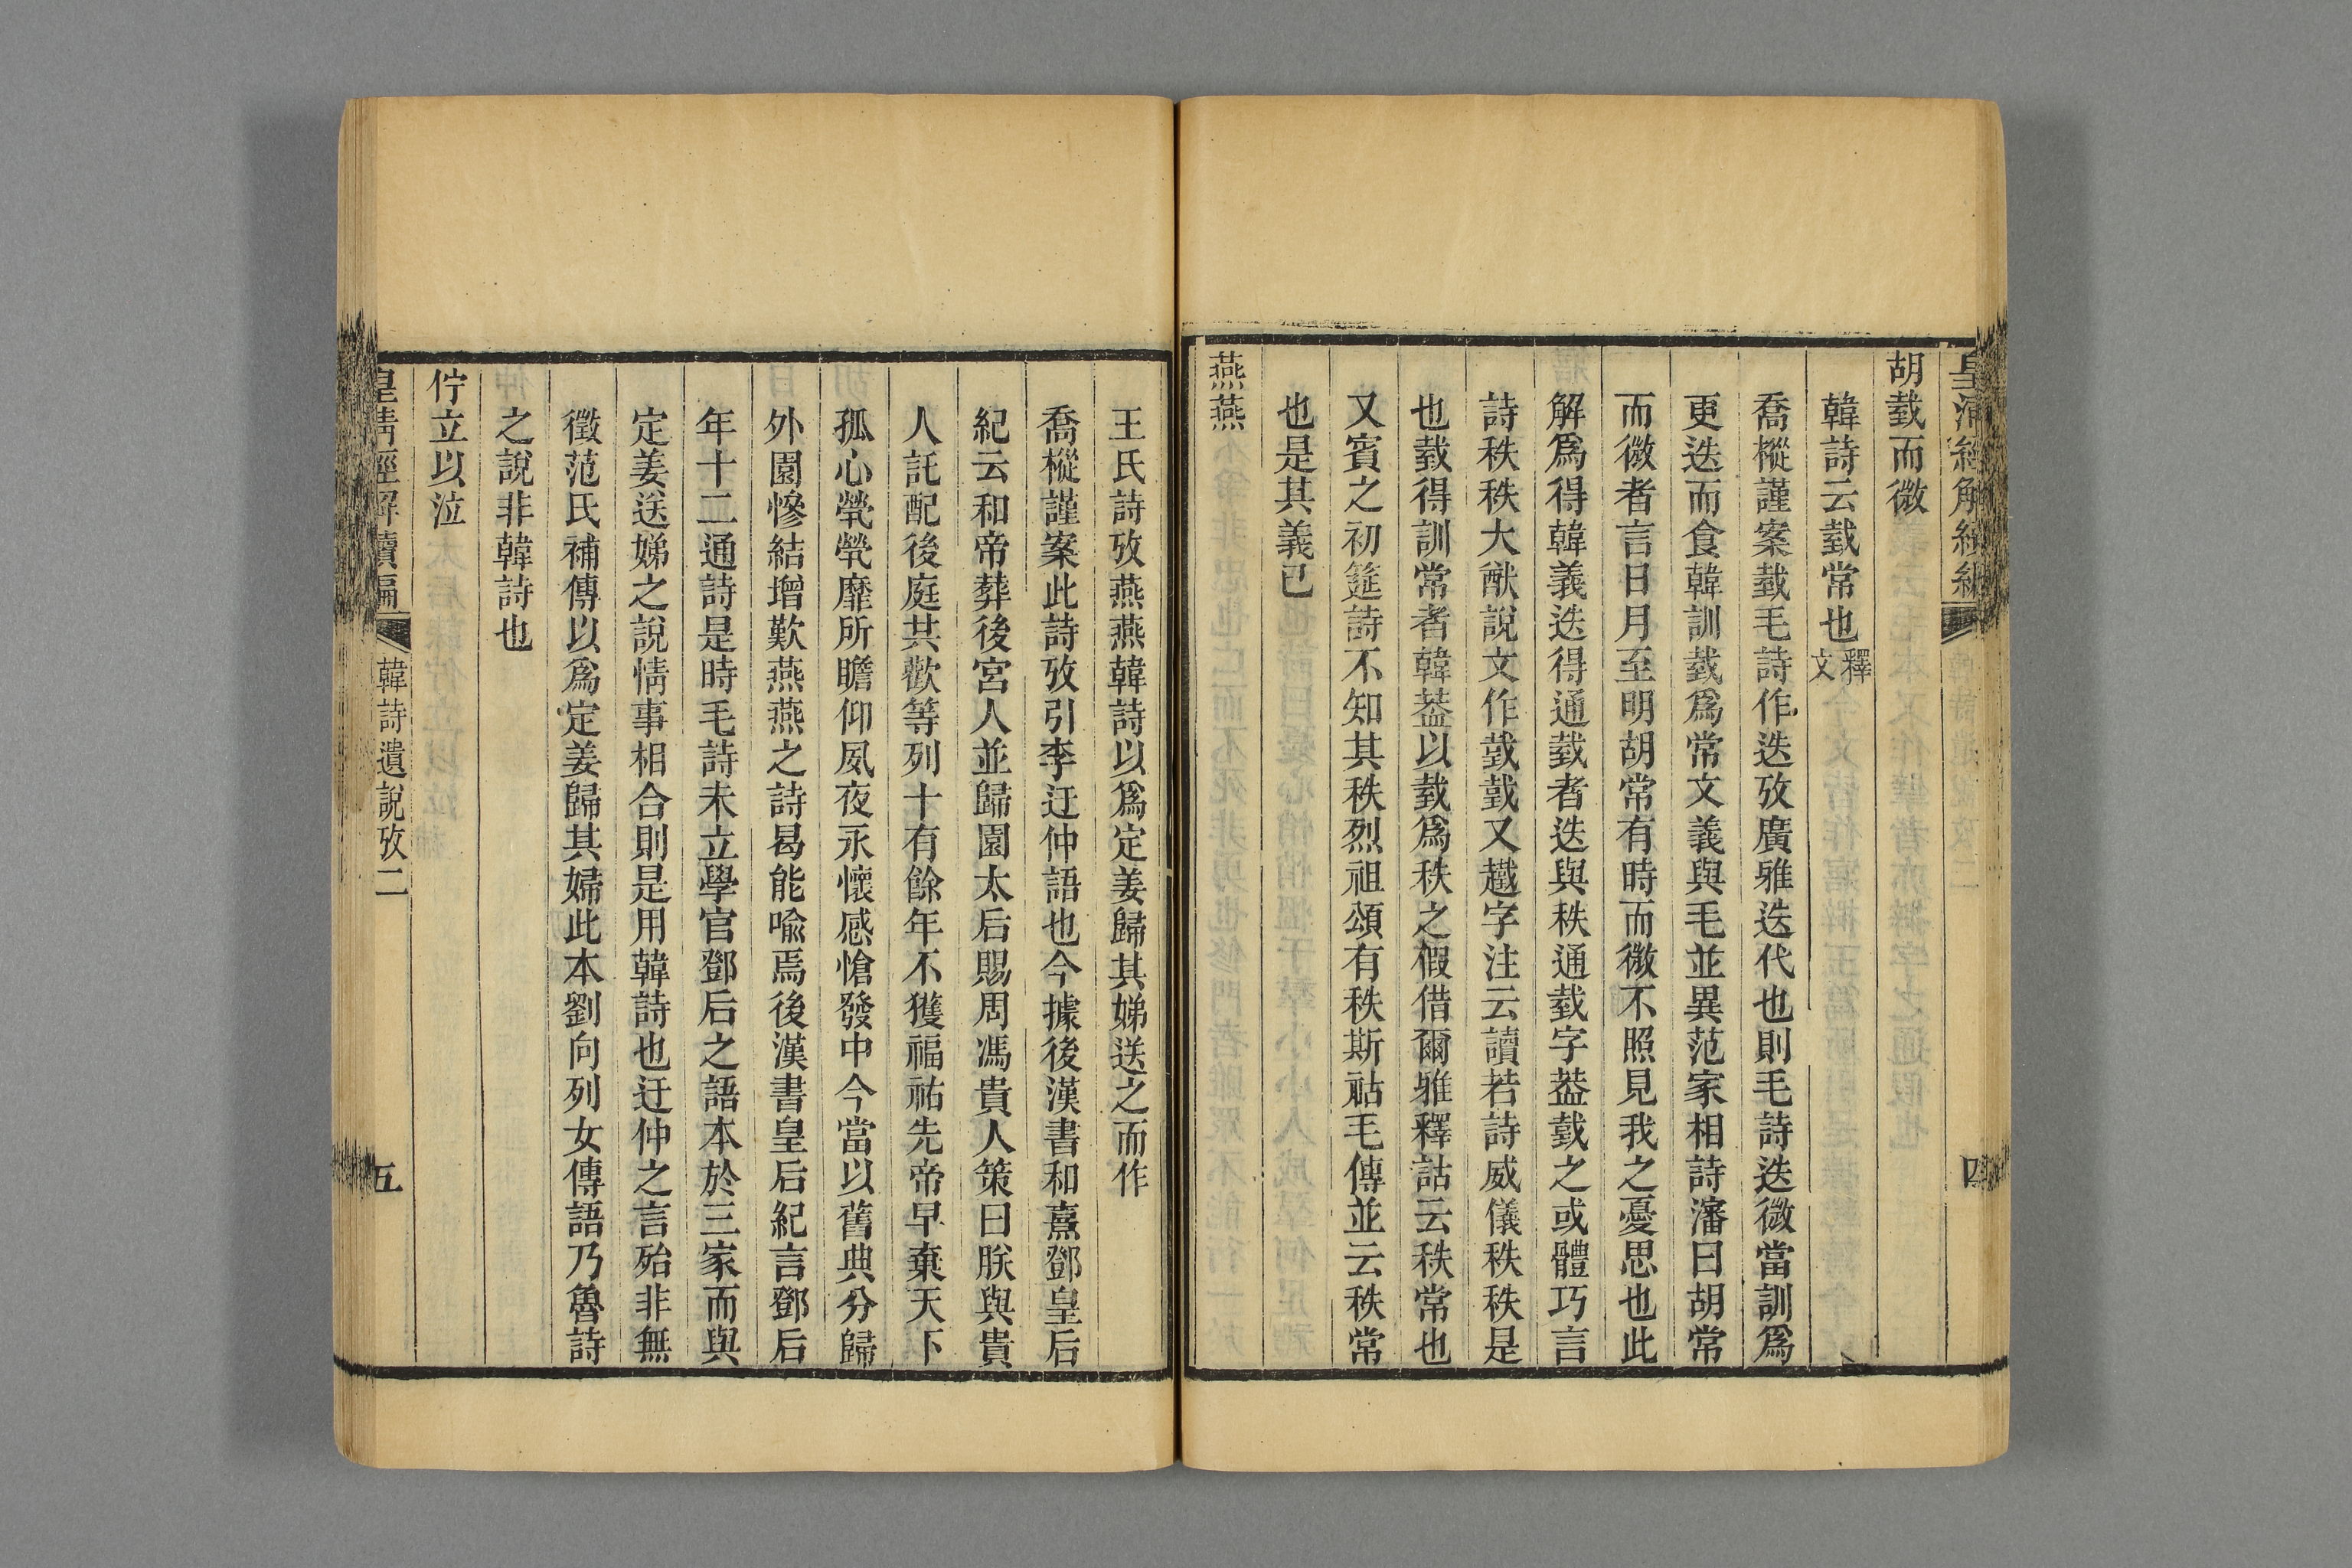 胡臷而微
韓詩云臷常也釋文
喬樅謹案臷毛詩作迭攷廣雅迭代也則毛詩迭微當訓爲
更迭而食韓訓臷爲常文義與毛並異范家相詩瀋曰胡常
而微者言日月至明胡常有時而微不照見我之憂思也此
解爲得韓義迭得通臷者迭與秩通臷字葢臷之或體巧言
詩秩秩大猷說文作臷臷又趫字注云讀若詩威儀秩秩是
也臷得訓常者韓葢以臷爲秩之假借爾雅釋詁云秩常也
又賓之初筵詩不知其秩烈祖頌有秩斯祜毛傳並云秩常
也是其義已
燕燕
王氏詩攷燕燕韓詩以爲定姜歸其娣送之而作
喬樅謹案此詩攷引李迂仲語也今據後漢書和熹鄧皇后
紀云和帝葬後宮人並歸園太后賜周馮貴人策曰朕與貴
人託配後庭共歡等列十有餘年不獲福祐先帝早棄天下
孤心煢煢靡所瞻仰夙夜永懷感愴發中今當以舊典分歸
外園慘結增歎燕燕之詩曷能喻焉後漢書皇后紀言鄧后
年十二通詩是時毛詩未立學官鄧后之語本於三家而與
定姜送娣之說情事相合則是用韓詩也迂仲之言殆非無
徵范氏補傳以爲定姜歸其婦此本劉向列女傳語乃魯詩
之說非韓詩也
佇立以泣
皇清經解續編 韓詩遺說攷二 五